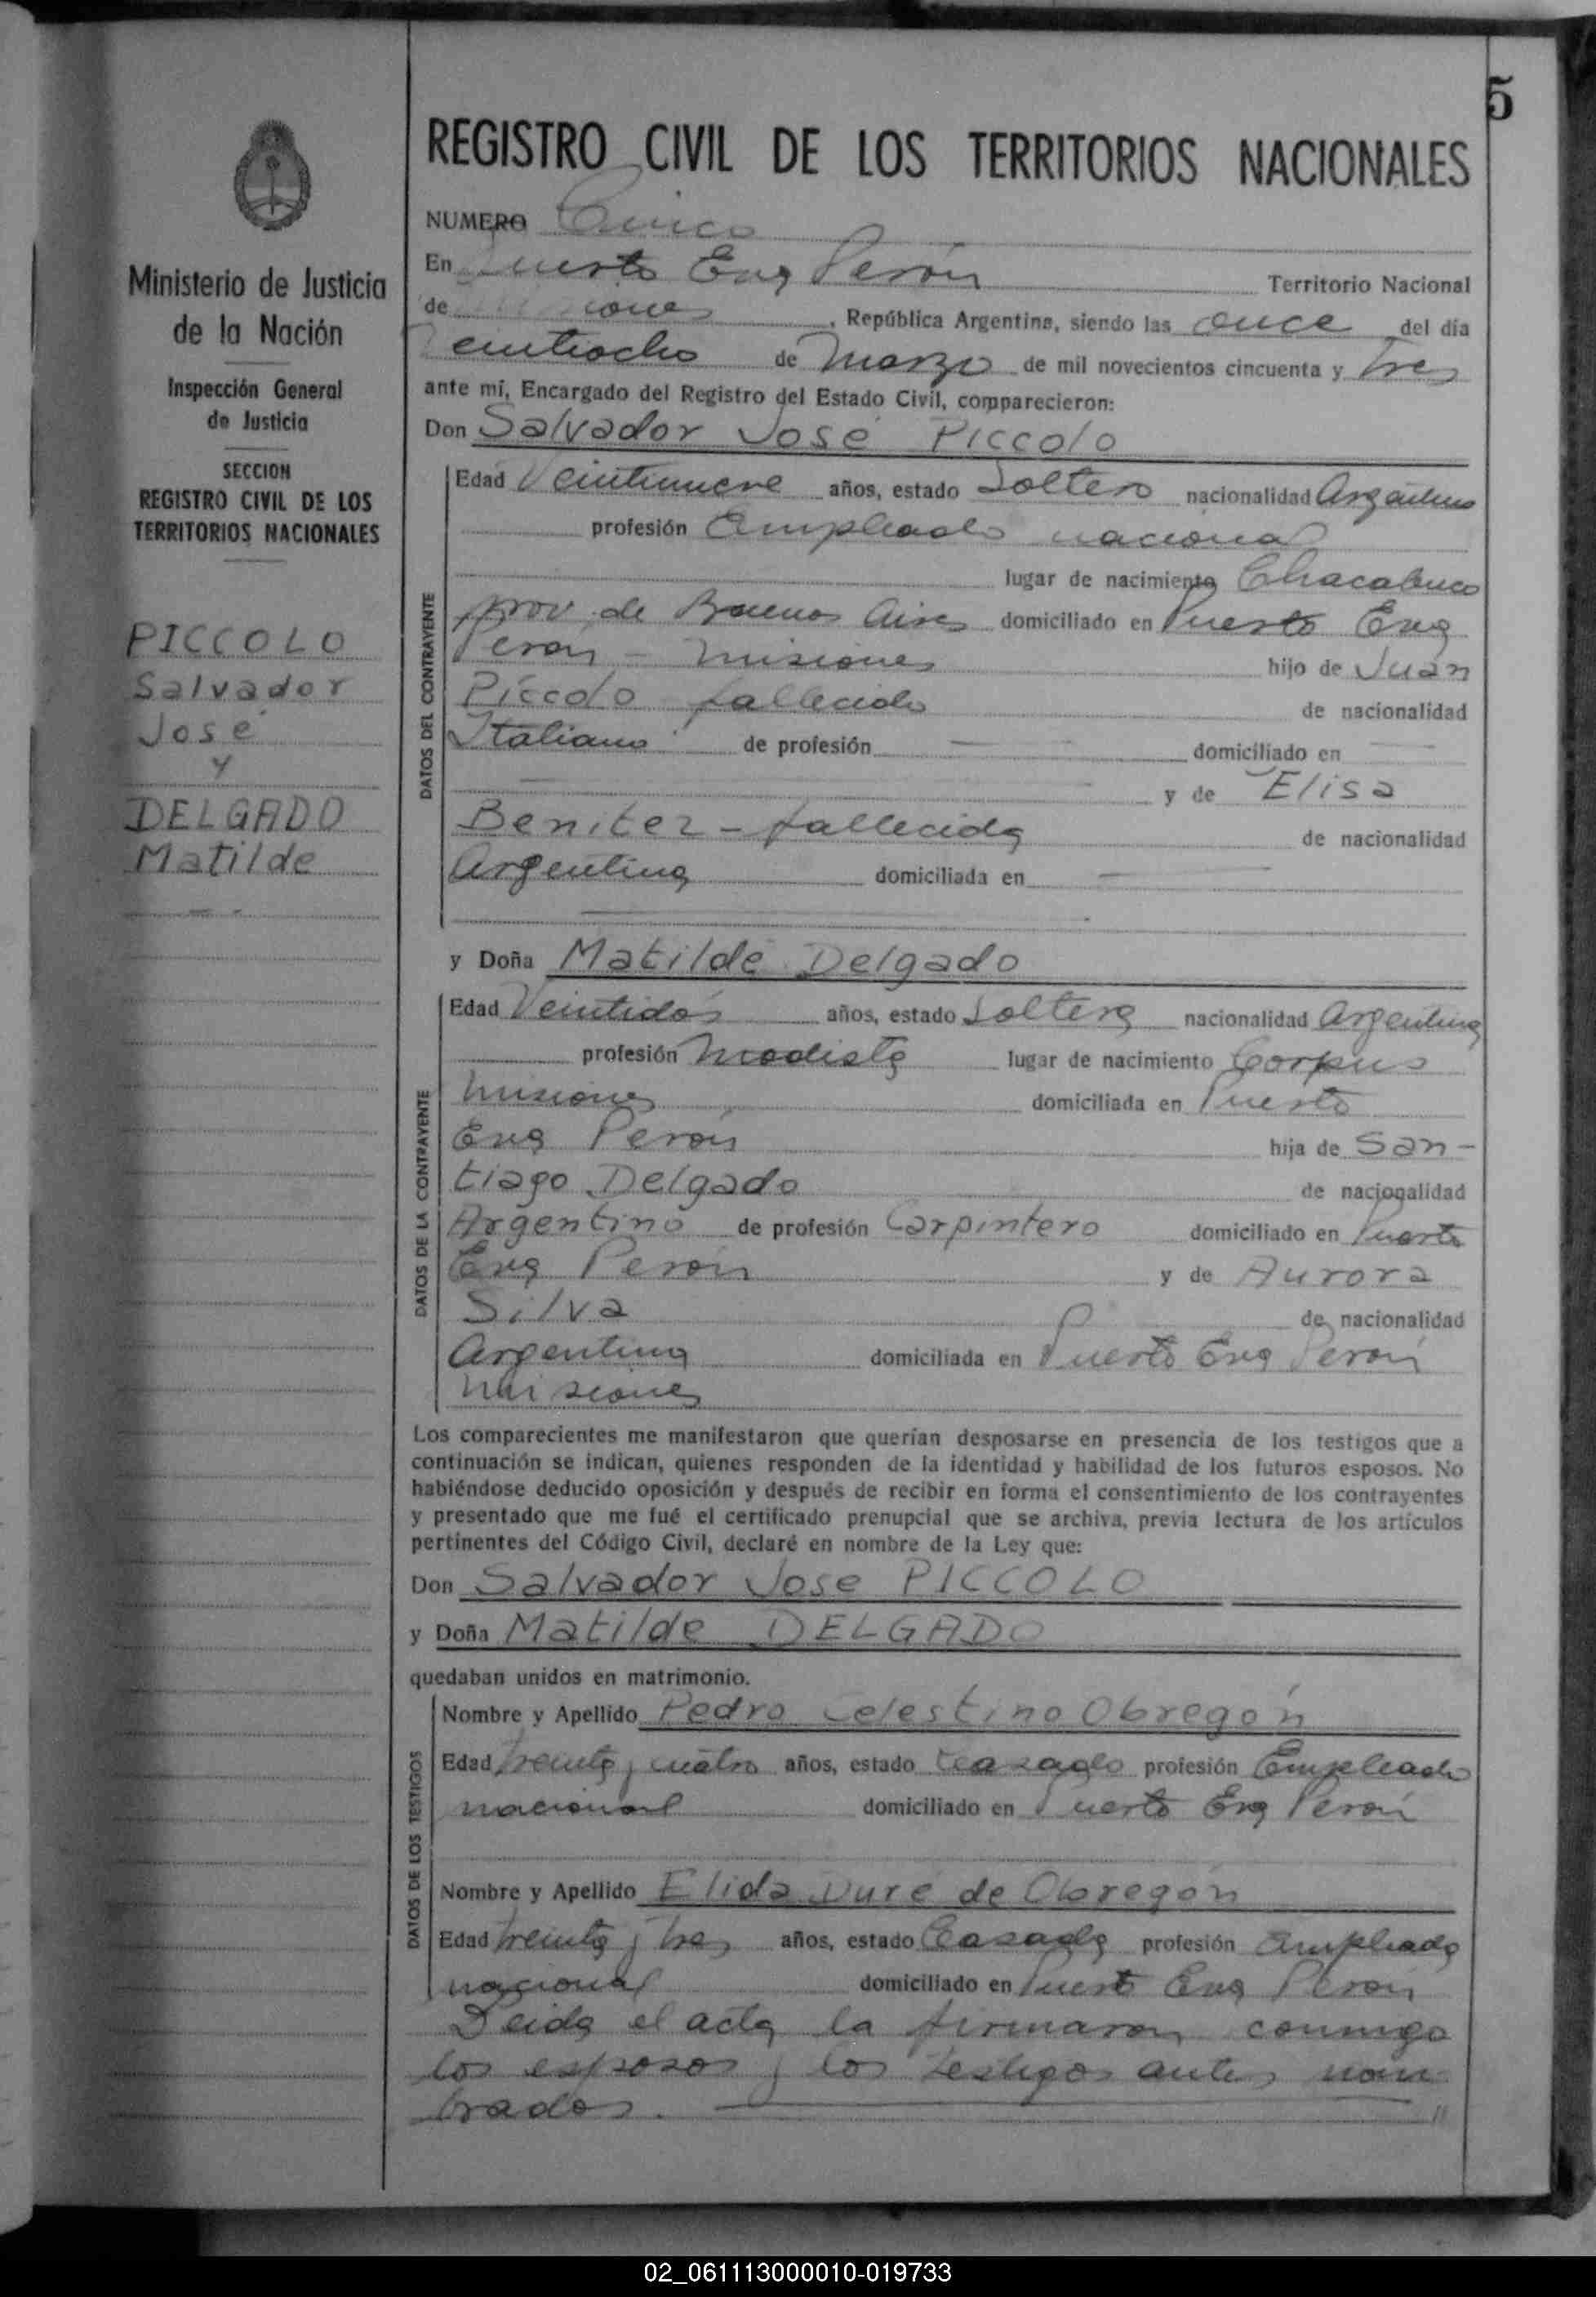 5
REGISTRO CIVIL DE LOS TERRITORIOS NACIONALES
Ministerio de Justicia
de la Nación
Inspección General
de Justicia
SECCION
REGISTRO CIVIL DE LOS
TERRITORIOS NACIONALES
PICCOLO
Salvador
José
y
DELGADO
Matilde
NUMERO Cinco
En Puerto Eva Perón Territorio Nacional
de Misiones, República Argentina, siendo las once del día
Veintiocho de Marzo de mil novecientos cincuenta y tres
ante mí, Encargado del Registro del Estado Civil, comparecieron:
Don Salvador José PICCOLO
DATOS DEL CONTRAYENTE
Edad Veintinueve años, estado Soltero nacionalidad Argentino
profesión Empleado nacional
lugar de nacimiento Chacabuco
prov. de Buenos Aires domiciliado en Puerto Eva
Perón - Misiones hijo de Juan
Píccolo fallecido de nacionalidad
Italiano de profesión — domiciliado en —
— y de Elisa
Benitez - fallecida de nacionalidad
Argentina domiciliada en —
y Doña Matilde Delgado
DATOS DE LA CONTRAYENTE
Edad Veintidós años, estado Soltera nacionalidad Argentina
profesión Modista lugar de nacimiento Corpus
Misiones domiciliada en Puerto
Eva Perón hija de San-
tiago Delgado de nacionalidad
Argentino de profesión Carpintero domiciliado en Puerto
Eva Perón y de Aurora
Silva de nacionalidad
Argentina domiciliada en Puerto Eva Perón
Misiones
Los comparecientes me manifestaron que querían desposarse en presencia de los testigos que a
continuación se indican, quienes responden de la identidad y habilidad de los futuros esposos. No
habiéndose deducido oposición y después de recibir en forma el consentimiento de los contrayentes
y presentado que me fué el certificado prenupcial que se archiva, previa lectura de los artículos
pertinentes del Código Civil, declaré en nombre de la Ley que:
Don Salvador Jose PICCOLO
y Doña Matilde DELGADO
quedaban unidos en matrimonio.
DATOS DE LOS TESTIGOS
Nombre y Apellido Pedro Celestino Obregón
Edad treinta y cuatro años, estado casado profesión Empleado
nacional domiciliado en Puerto Eva Perón
Nombre y Apellido Elida Duré de Obregón
Edad treinta y tres años, estado Casada profesión Empleada
nacional domiciliado en Puerto Eva Perón
Leida el acta la firmaron conmigo
los esposos y los testigos antes nom-
brados. —
02_061113000010-019733